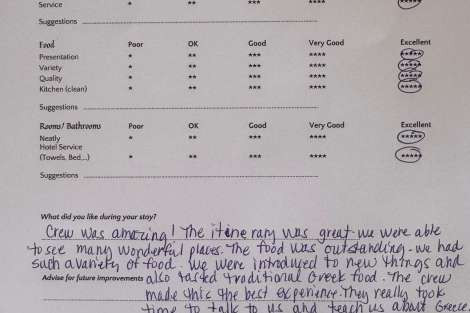 Service * ** *** **** *****
Suggestions
Food Poor OK Good Very Good Excellent
Presentation * ** *** **** *****
Variety * ** *** **** *****
Quality * ** *** **** *****
Kitchen (clean) * ** *** **** *****
Suggestions
Rooms / Bathrooms Poor OK Good Very Good Excellent
Neatly * ** *** **** *****
Hotel Service
(Towels, Bed,..) * ** *** **** *****
Suggestions
What did you like during your stay?
Crew was amazing! The itinerary was great we were able
to see many wonderful places. The food was outstanding. we had
such a variety of food. We were introduced to new things and
Advise for future improvements also tasted traditional Greek food. The crew
made this the best experience. They really took
time to talk to us and teach us about Greece